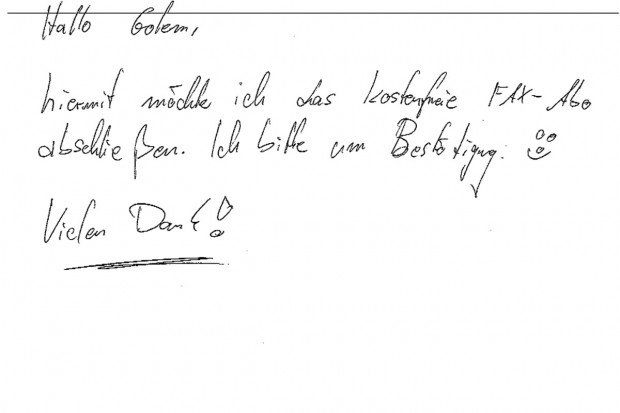 Hallo Golem,
hiermit möchte ich das kostenfreie FAX-Abo
abschließen. Ich bitte um Bestätigung.
Vielen Dank!